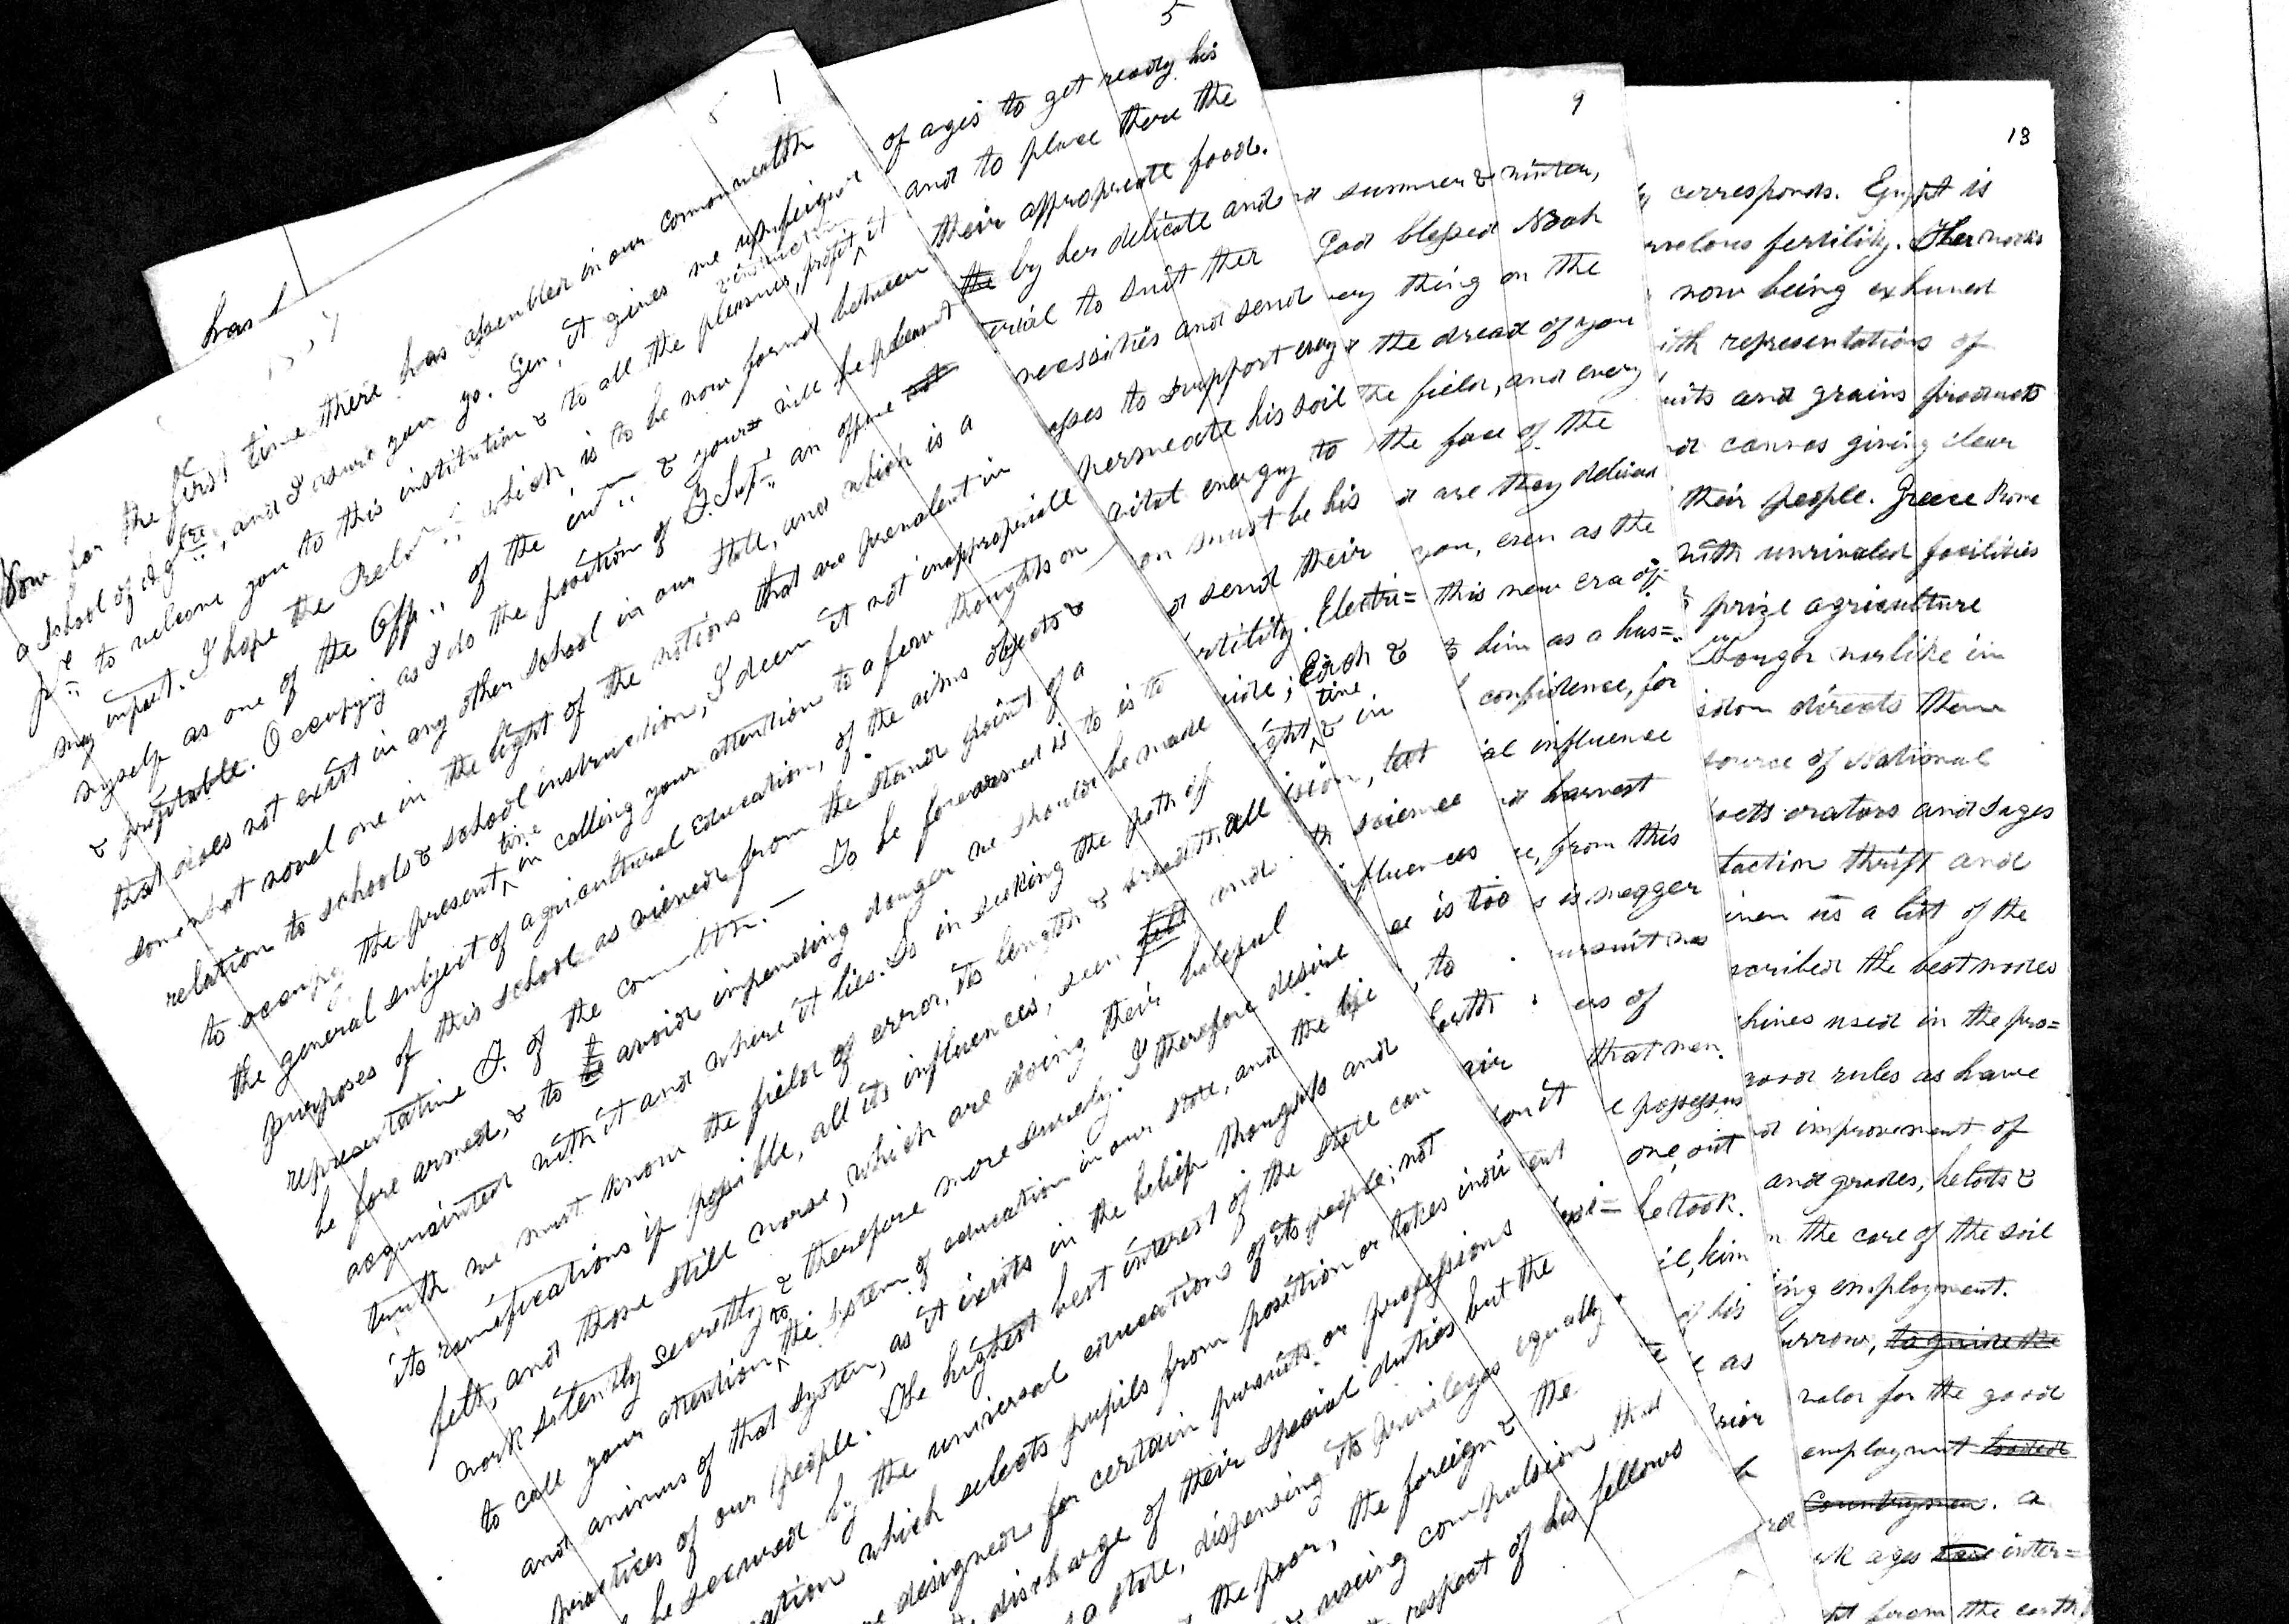 has
1
Now for the first time there has assembled in our commonwealth
a school of Agre, and I assure you yo. Gen, it gives me unfeigned
pe to welcome you to this institution & to all the pleasures, profit it
instruction
may impart. I hope the Rela which is to be now formed between
myself as one of the Off of the in & yours will be pleasant
& profitable. Occupying as I do the position of an office
that does not exist in any other school in our State, and which is a
somewhat novel one in the light of the notions that are prevalent in
relation to schools & school instruction, I deem it not inappropriate
to occupy the present time in calling your attention to a few thoughts on
the general subject of agricultural education, of the aims objects &
purposes of this school as viewed from the stand point of a
representative F. of the com — To be forewarned is to is to
be fore armed, & to avoid impending danger we should be made
acquainted with it and where it lies. So in seeking the path of
truth we must know the field of error, its length & breadth, all
its ramifications if possible, all its influences, seen felt and
felt, and those still worse, which are doing their baleful
work silently secretly & therefore more surely. I therefore desire
to call your attention to the system of education in our state, and the
and animus of that system, as it exists in the belief thoughts and
practices of our people. The highest best interest of the state can
be secured by the universal educations of its people; not
ation which selects pupils from position or takes indi
e designed for certain pursuits or professions
discharge of their special duties but the
a state, dispensing its privileges equally
the poor, the foreign & the
using compulsion that
respect of his fellows
5
of ages to get ready his
and to place there the
their appropriate food.
the by her delicate and
erial to suit ther
necessities and send
yses to support every
permeate his soil
vital energy to
on must be his
d send their
rtility. Electri=
side; Each &
ight time & in
ision, but
th science
influences
ee is too
, to
earth
air
on it
ent
9
d summer & winter,
God blessed Noah
ery thing on the
& the dread of you
the field, and every
the face of the
d are they delivered
you, even as the
this new era of
him as a hus=
confidence, for
al influence
d harvest
e, from this
s is meager
ursuit has
ers of
that men.
e possesses
one, out
he took.
il, him
of his
e as
rior
13
y corresponds. Egypt is
rvelous fertility. Her works
now being exhumed
ith representations of
uits and grains products
d canvas giving clear
their people. Greece Rome
with unrivaled facilities
prize agriculture
Plough warlike in
isdom directs them
source of National
oets orators and sages
faction thrift and
iven us a list of the
scribed the best modes
hines used in the pro=
good rules as have
d improvement of
and grades, helots &
n the care of the soil
ing employment.
urrow, to guide the
valor for the good
employment loaded
Countrymen. a
rk ages have inter=
ht from the earth